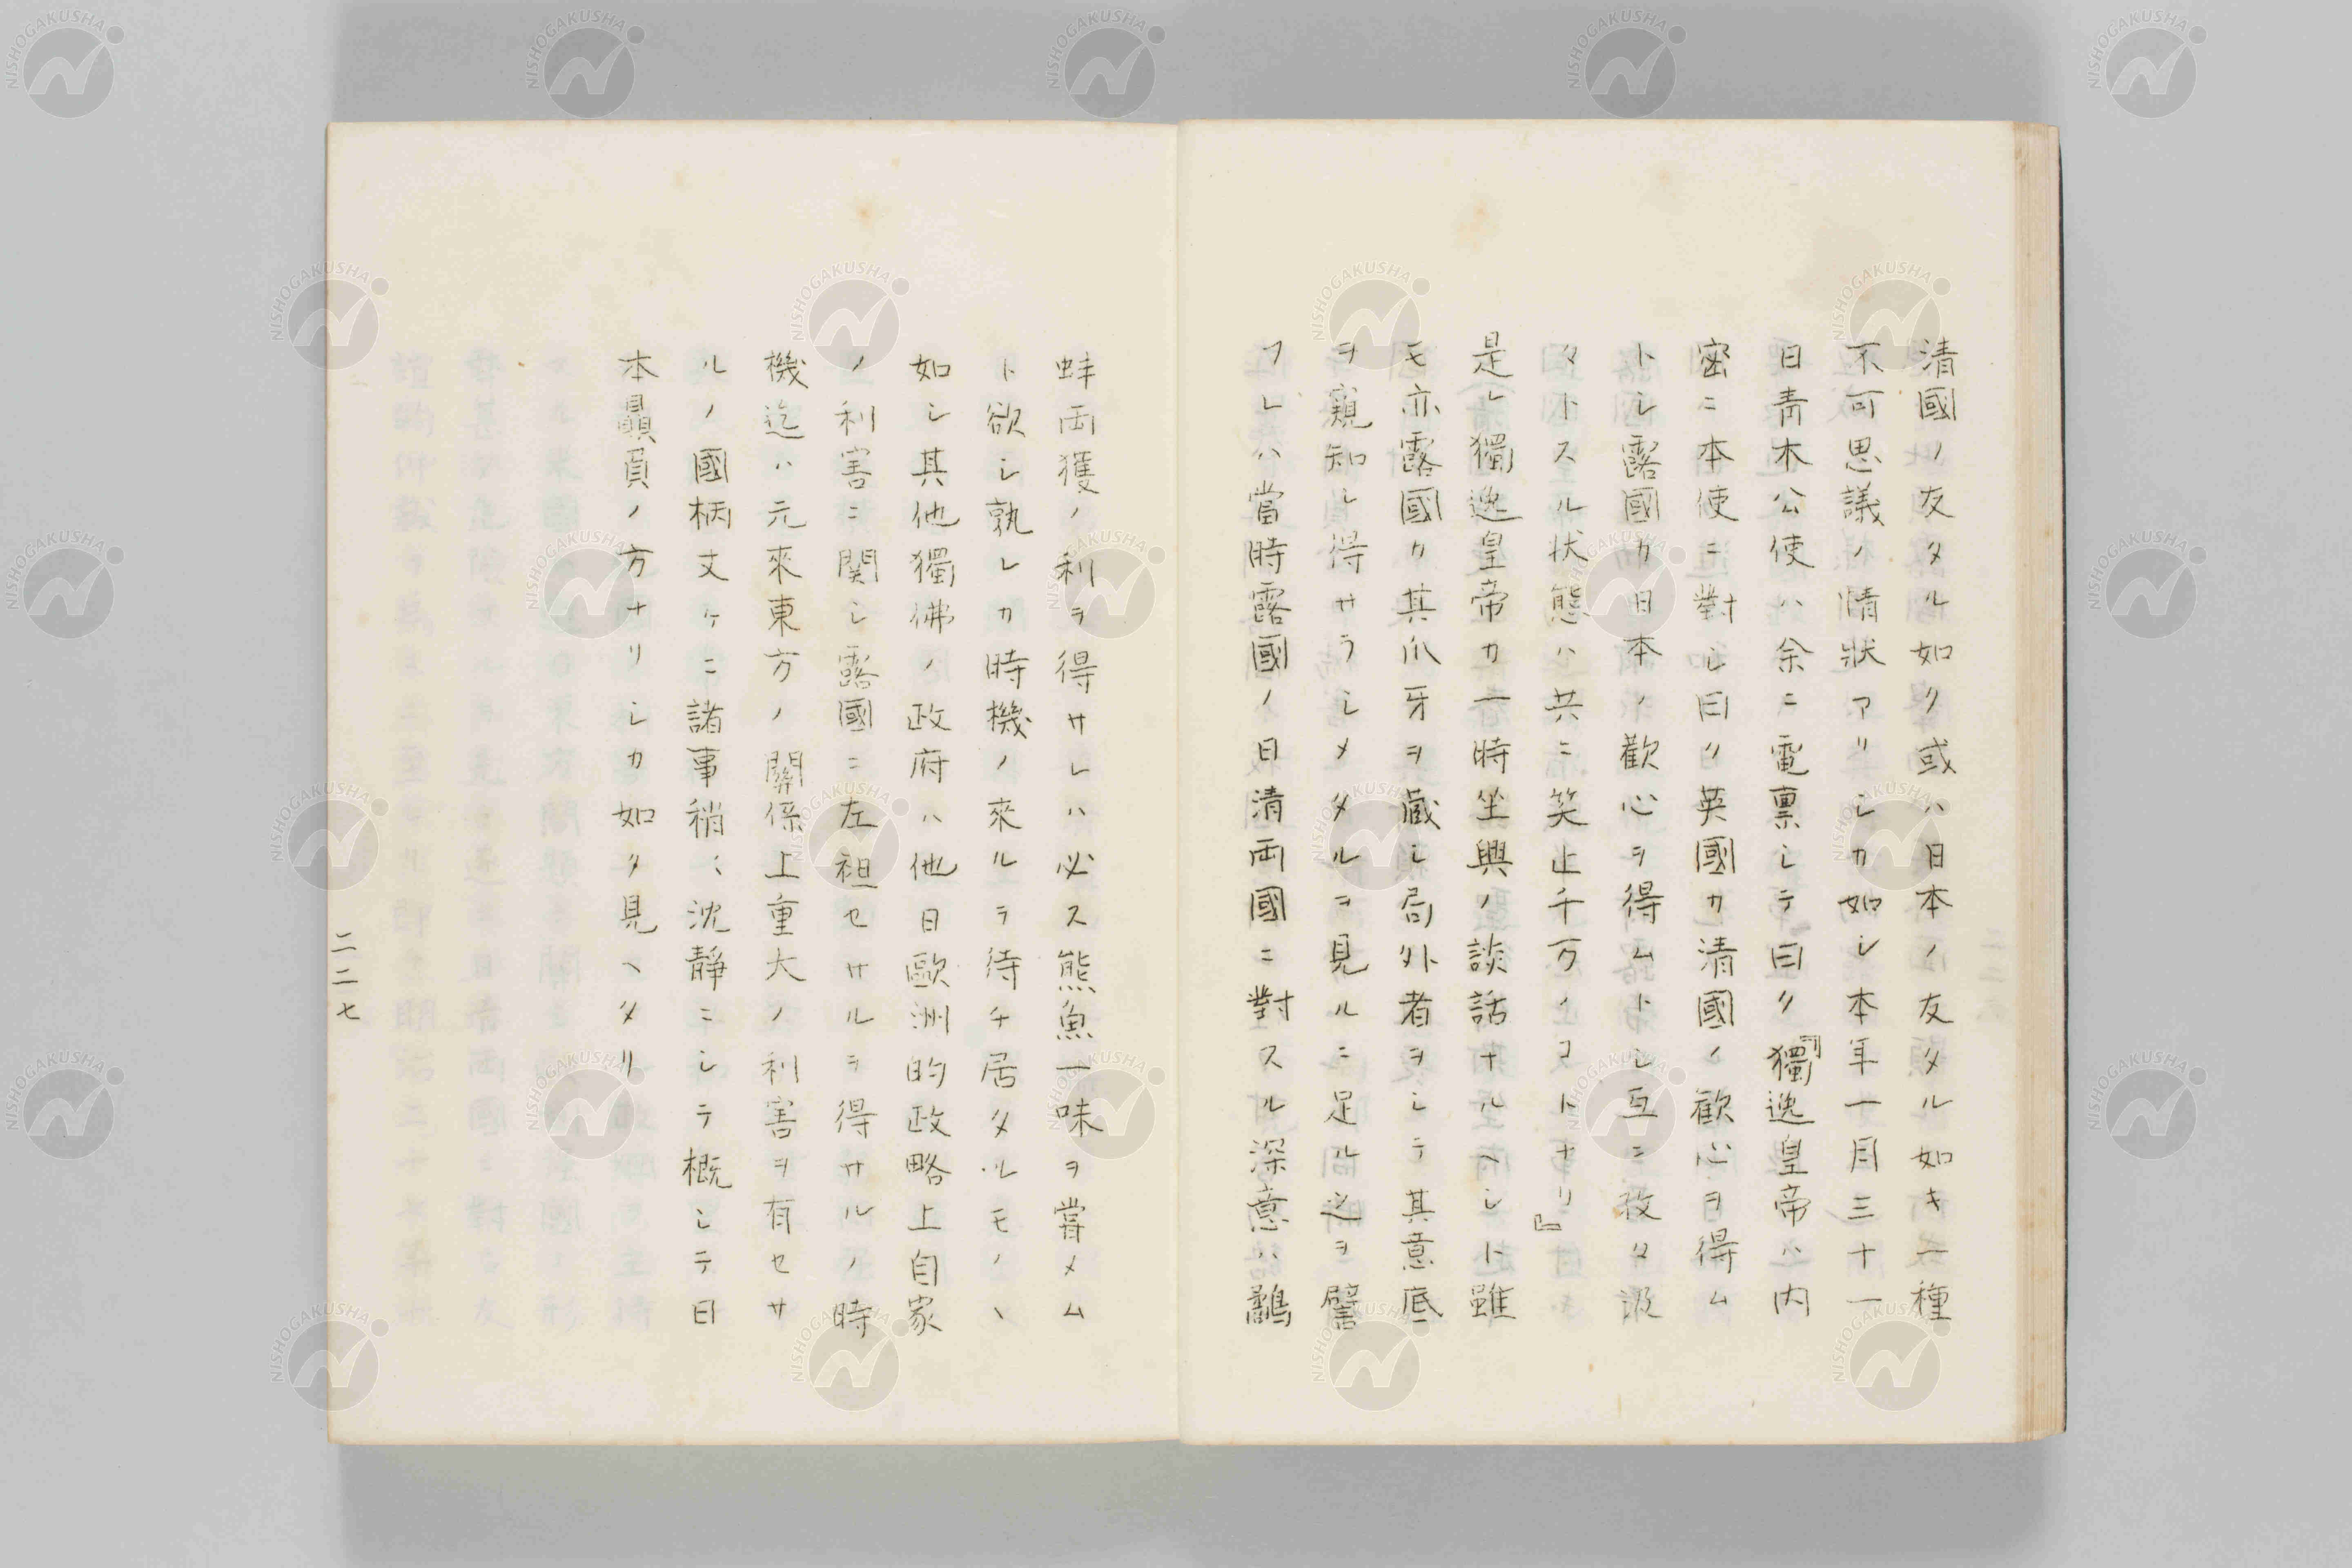 清國ノ友タル如ク或ハ日本ノ友タル如キ一種
不可思議ノ情狀アリシカ如シ本年一月三十一
日青木公使ハ余ニ電稟シテ曰ク『獨逸皇帝ハ內
密ニ本使ニ對シ曰ク英國カ清國ノ歡心ヲ得ム
トシ露國カ日本ノ歡心ヲ得ムトシ互ニ孜々汲
々トスル状態ハ共ニ笑止千万ノコトナリ』
是レ獨逸皇帝カ一時坐興ノ談話ナルヘシト雖
モ亦露國カ其爪牙ヲ蔵シ局外者ヲシテ其意底
ヲ窺知シ得サラシメタルヲ見ルニ足ル之ヲ譬
フレハ當時露國ノ日清両國ニ對スル深意ハ鷸
蚌両獲ノ利ヲ得サレハ必ス熊魚一味ヲ嘗メム
ト欲シ孰レカ時機ノ來ルヲ待チ居タルモノヽ
如シ其他獨佛ノ政府ハ他日歐洲的政略上自家
ノ利害ニ関シ露國ニ左袒セサルヲ得サルノ時
機迄ハ元來東方ノ關係上重大ノ利害ヲ有セサ
ルノ國柄丈ケニ諸事稍〻沈靜ニシテ概シテ日
本贔負ノ方ナリシカ如ク見ヘタリ
二二七
NISHOGAKUSHA